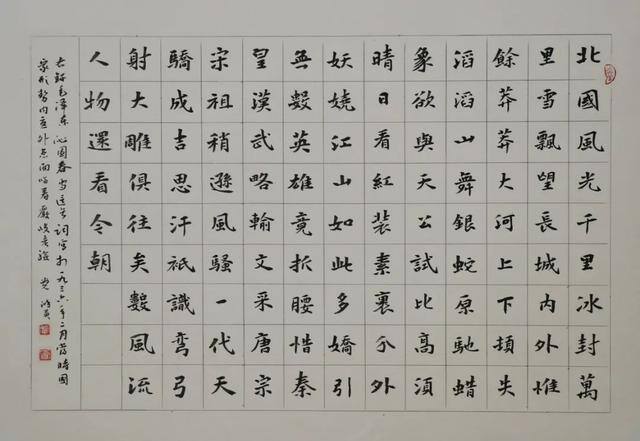 北國風光千里冰封萬
里雪飄望長城內外惟
餘莽莽大河上下頓失
滔滔山舞銀蛇原馳蜡
象欲與天公試比高須
晴日看紅裝素裹分外
妖嬈江山如此多嬌引
無數英雄竟折腰惜秦
皇漢武略輸文采唐宗
宋祖稍遜風騷一代天
驕成吉思汗祇識彎弓
射大雕俱往矣數風流
人物還看今朝
右錄毛澤東沁園春雪這首詞寫於一九三六年二月當時國
家形勢內憂外患面臨着嚴峻考驗